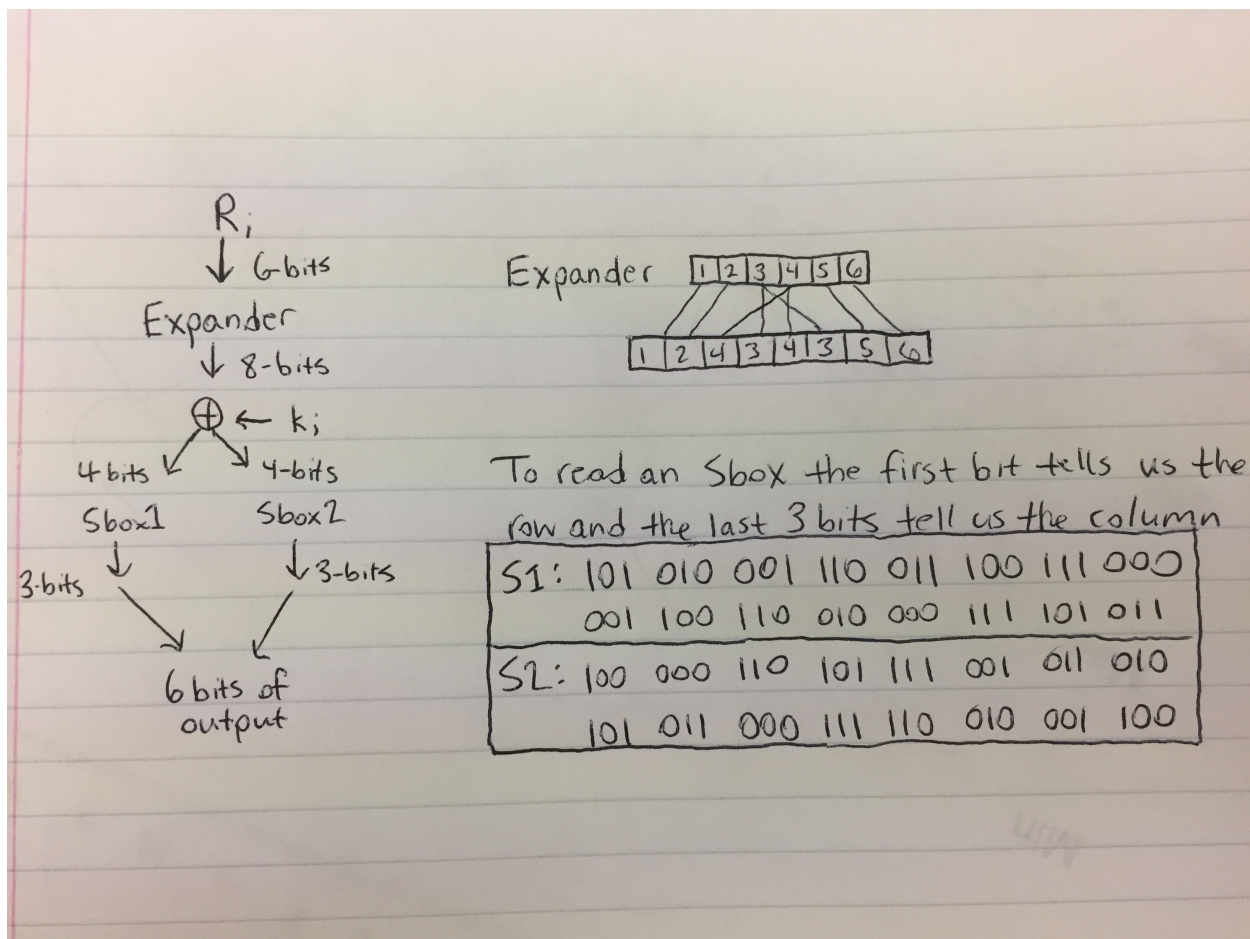 Ri
↓ 6-bits
Expander
↓ 8-bits
⊕ ← ki
4 bits 4-bits
Sbox1 Sbox2
3-bits 3-bits
6 bits of
output
Expander 1 2 3 4 5 6
1 2 4 3 4 3 5 6
To read an Sbox the first bit tells us the
row and the last 3 bits tell us the column
S1: 101 010 001 110 011 100 111 000
001 100 110 010 000 111 101 011
S2: 100 000 110 101 111 001 011 010
101 011 000 111 110 010 001 100